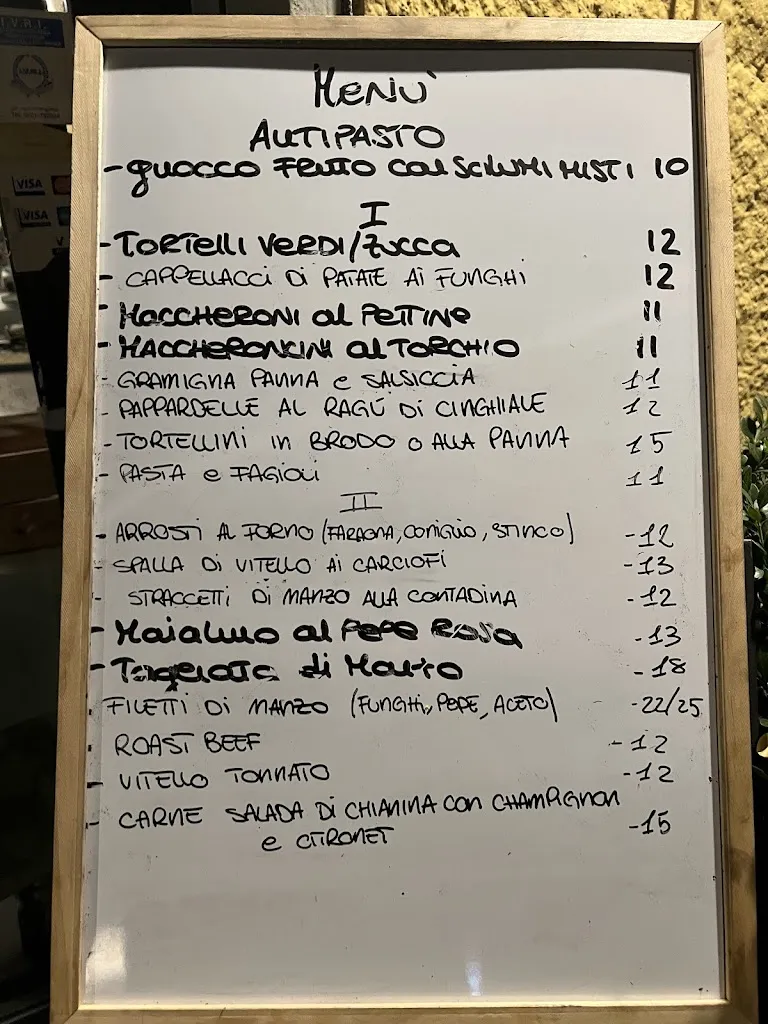 I.V.R.I.
VISA
VISA
V
MENU'
ANTIPASTO
- GNOCCO FRITTO CON SALUMI MISTI 10
I
- TORTELLI VERDI/ZUCCA 12
- CAPPELLACCI DI PATATE AI FUNGHI 12
- MACCHERONI AL PETTINE 11
- MACCHERONCINI AL TORCHIO 11
- GRAMIGNA PANNA e SALSICCIA 11
- PAPPARDELLE AL RAGÙ DI CINGHIALE 12
- TORTELLINI in BRODO o ALLA PANNA 15
- PASTA e FAGIOLI 11
II
- ARROSTI AL FORNO (FARAONA, CONIGLIO, STINCO) -12
- SPALLA DI VITELLO AI CARCIOFI -13
- STRACCETTI DI MANZO ALLA CONTADINA -12
- Maialino al Pepe Rosa -13
- Tagliata di Manzo -18
- FILETTI DI MANZO (FUNGHI, PEPE, ACETO) -22/25
- ROAST BEEF -12
- VITELLO TONNATO -12
- CARNE SALADA DI CHIANINA con CHAMPIGNON -15
e CITRONET